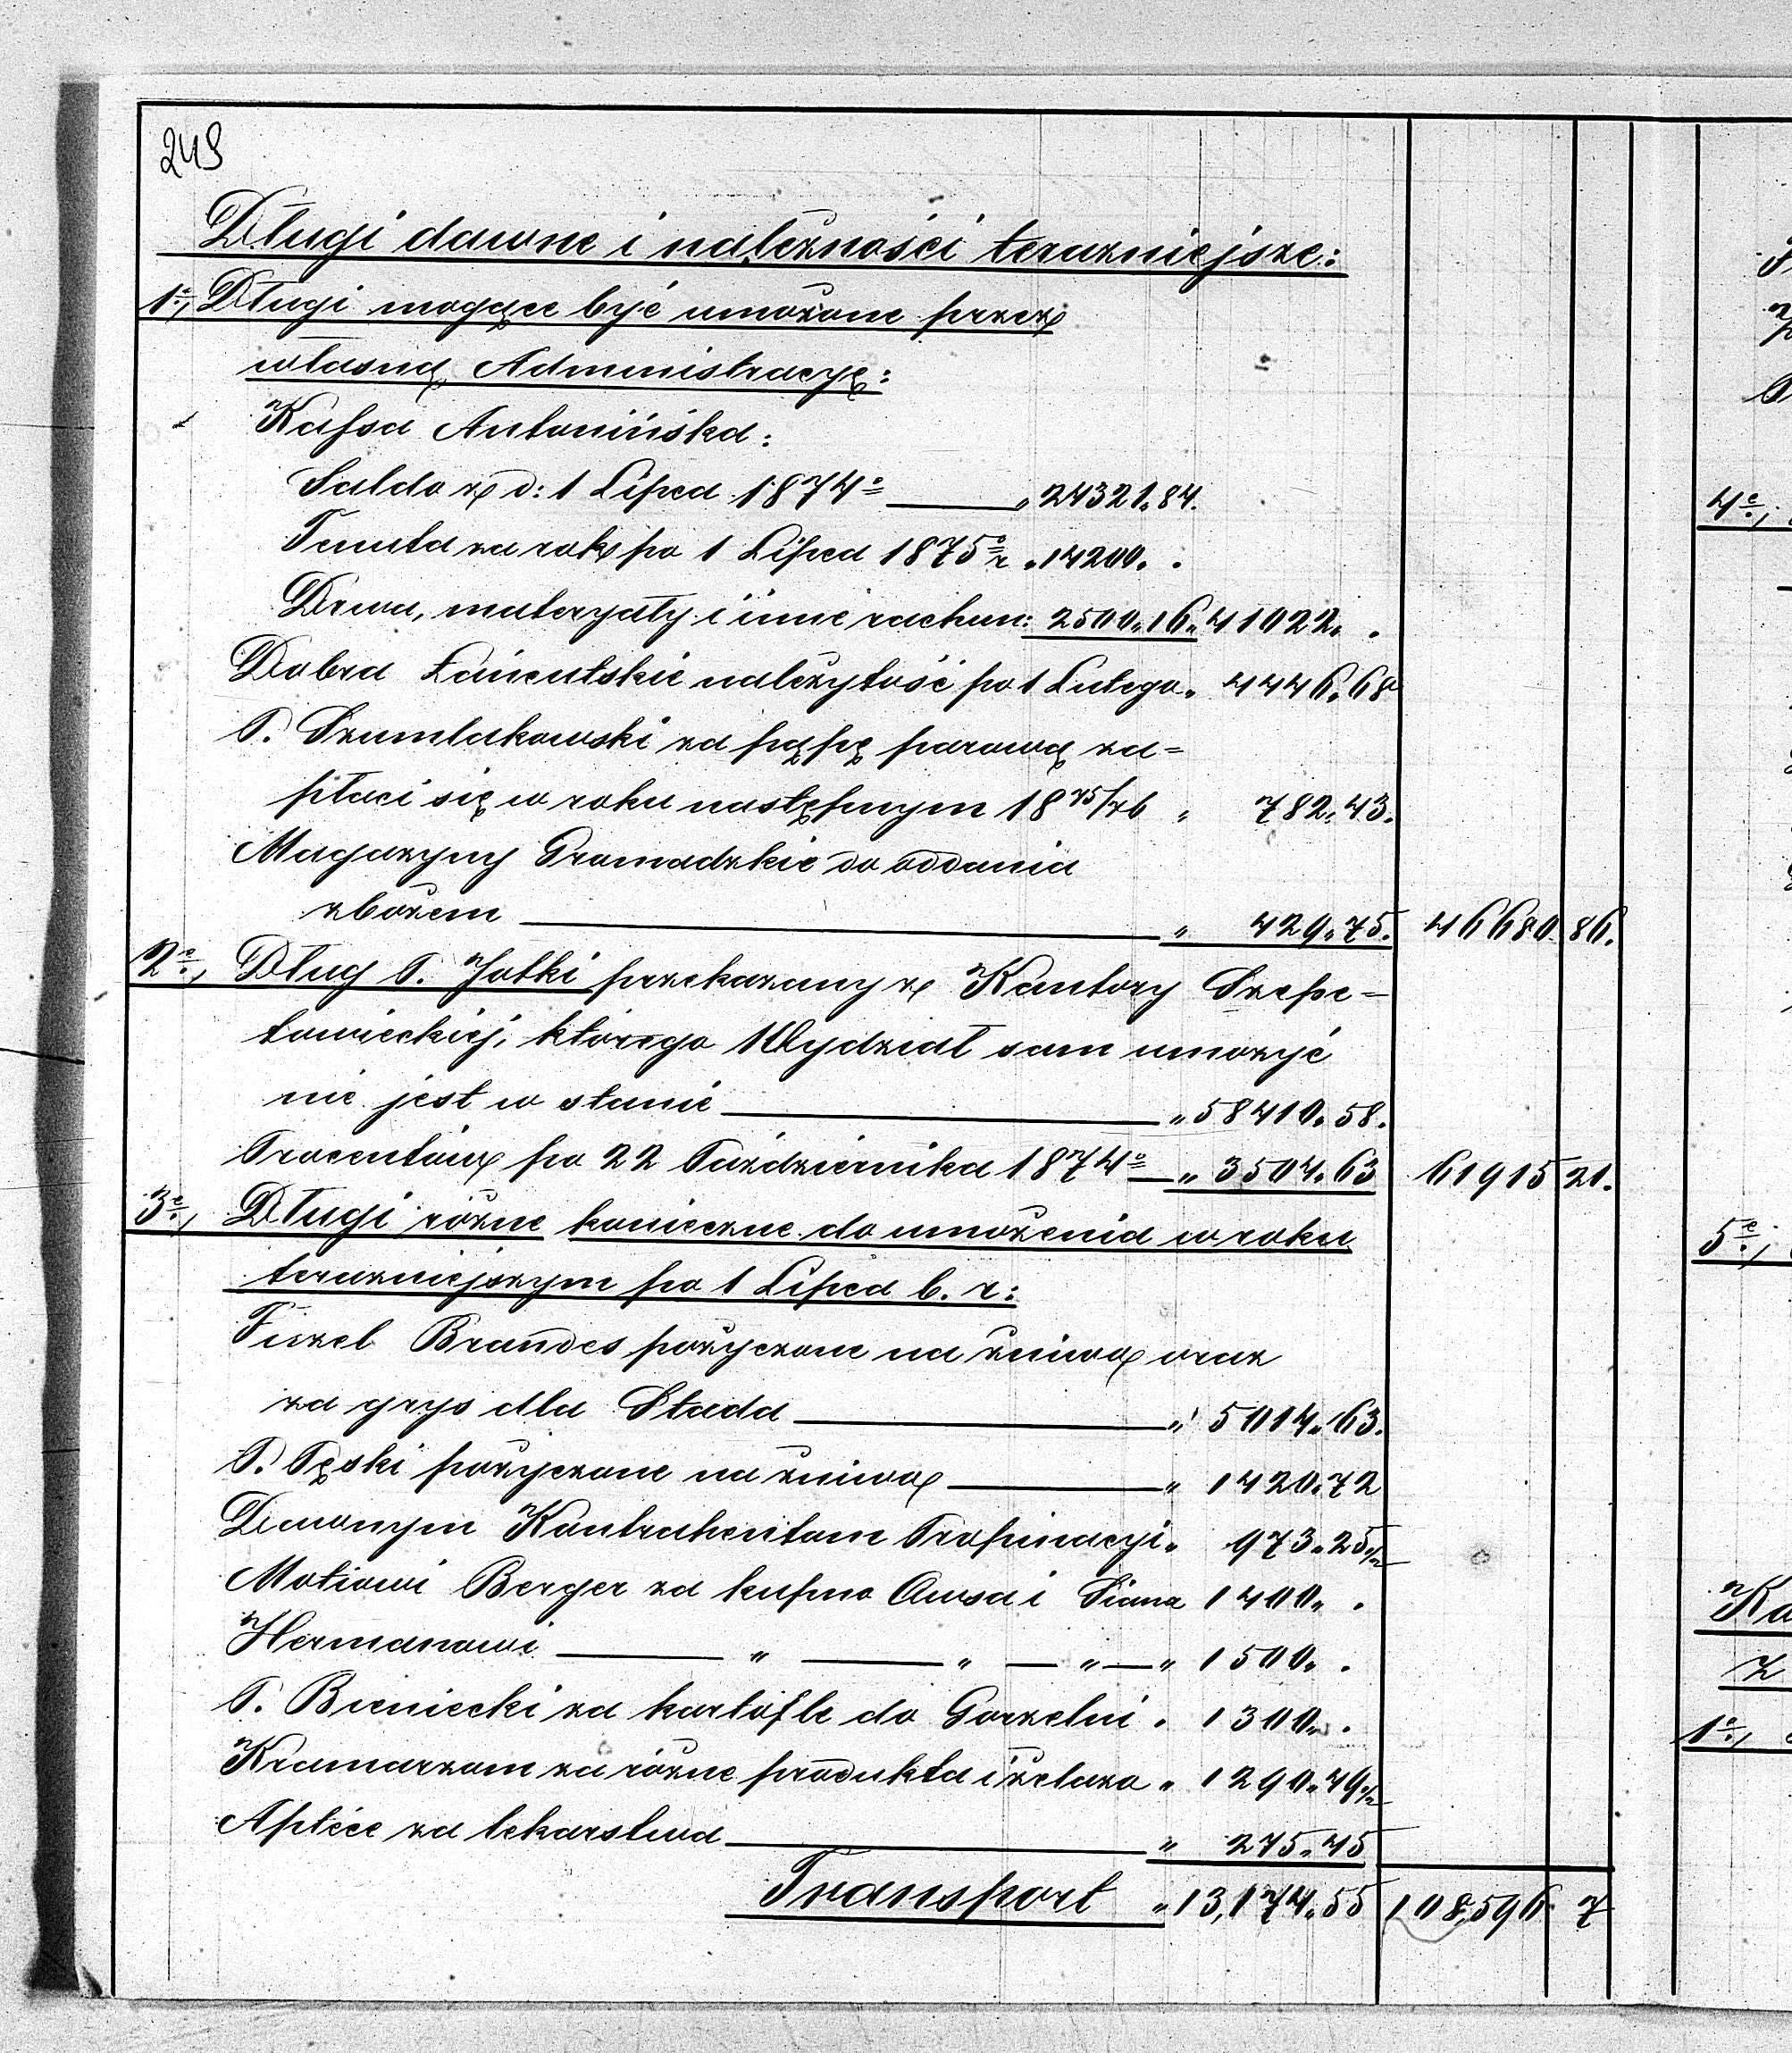 249
Długi dawne i należności teraźniejsze:
1e, Długi mogące być umożone przez
własną Administracyę:
Kassa Antonińska:
Saldo z d: 1 Lipca 1874o „ 24321.84.
Tenuta za rok po 1 Lipca 1875o r „ 14200. .
Drwa, materyały i inne rachun: 2500.16. 41022. .
Dobra Łańcutskie należytość po 1 Lutego „ 4446.68
P. Szumlakowski za pąpę parową za=
płaci się w roku następnym 1875/76 „ 782.43.
Magazyny Gromadzkie do oddania
zbożem „ 429.75. 46680 86.
2e, Dług P. Jotki przekazany z Kantory Szepe=
towieckiej, którego Wydział sam umorzyć
nie jest w stanie „ 58410.58.
Procentów po 22 Października 1874o „ 3504.63 61915 21.
3e, Długi różne konieczne do umożenia w roku
teraźniejszym po 1 Lipca b. r:
Fiszel Brandes pożyczone na żniwa oraz
za grys dla Stada „ 5014.63.
P. Pęski pożyczone na żniwa „ 1420.72
Dawnym Kontrahentom Propinacyi „ 973.25½
Motiowi Berger za kupno Owsa i Siana 1400„ .
Hermanowi „ „ „ „ 1500„ .
P. Bieniecki za kartofle do Gorzelni . 1300„ .
Kramarzom za różne produkta i żelazo „ 1290.49½
Aptéce za lekarstwa „ 275.45
Transport „ 13,174.55 108,596 7
4e,
5e,
Ka
Z
1e,